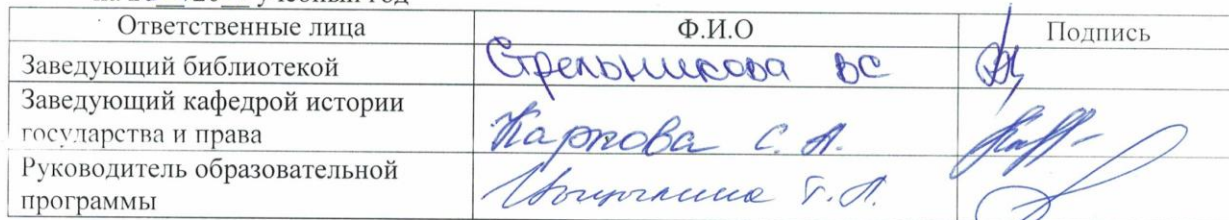 учебный год
Ответственные лица Ф.И.О Подпись
Заведующий библиотекой Стрельникова ВС
Заведующий кафедрой истории
государства и права С. А.
Руководитель образовательной
программы